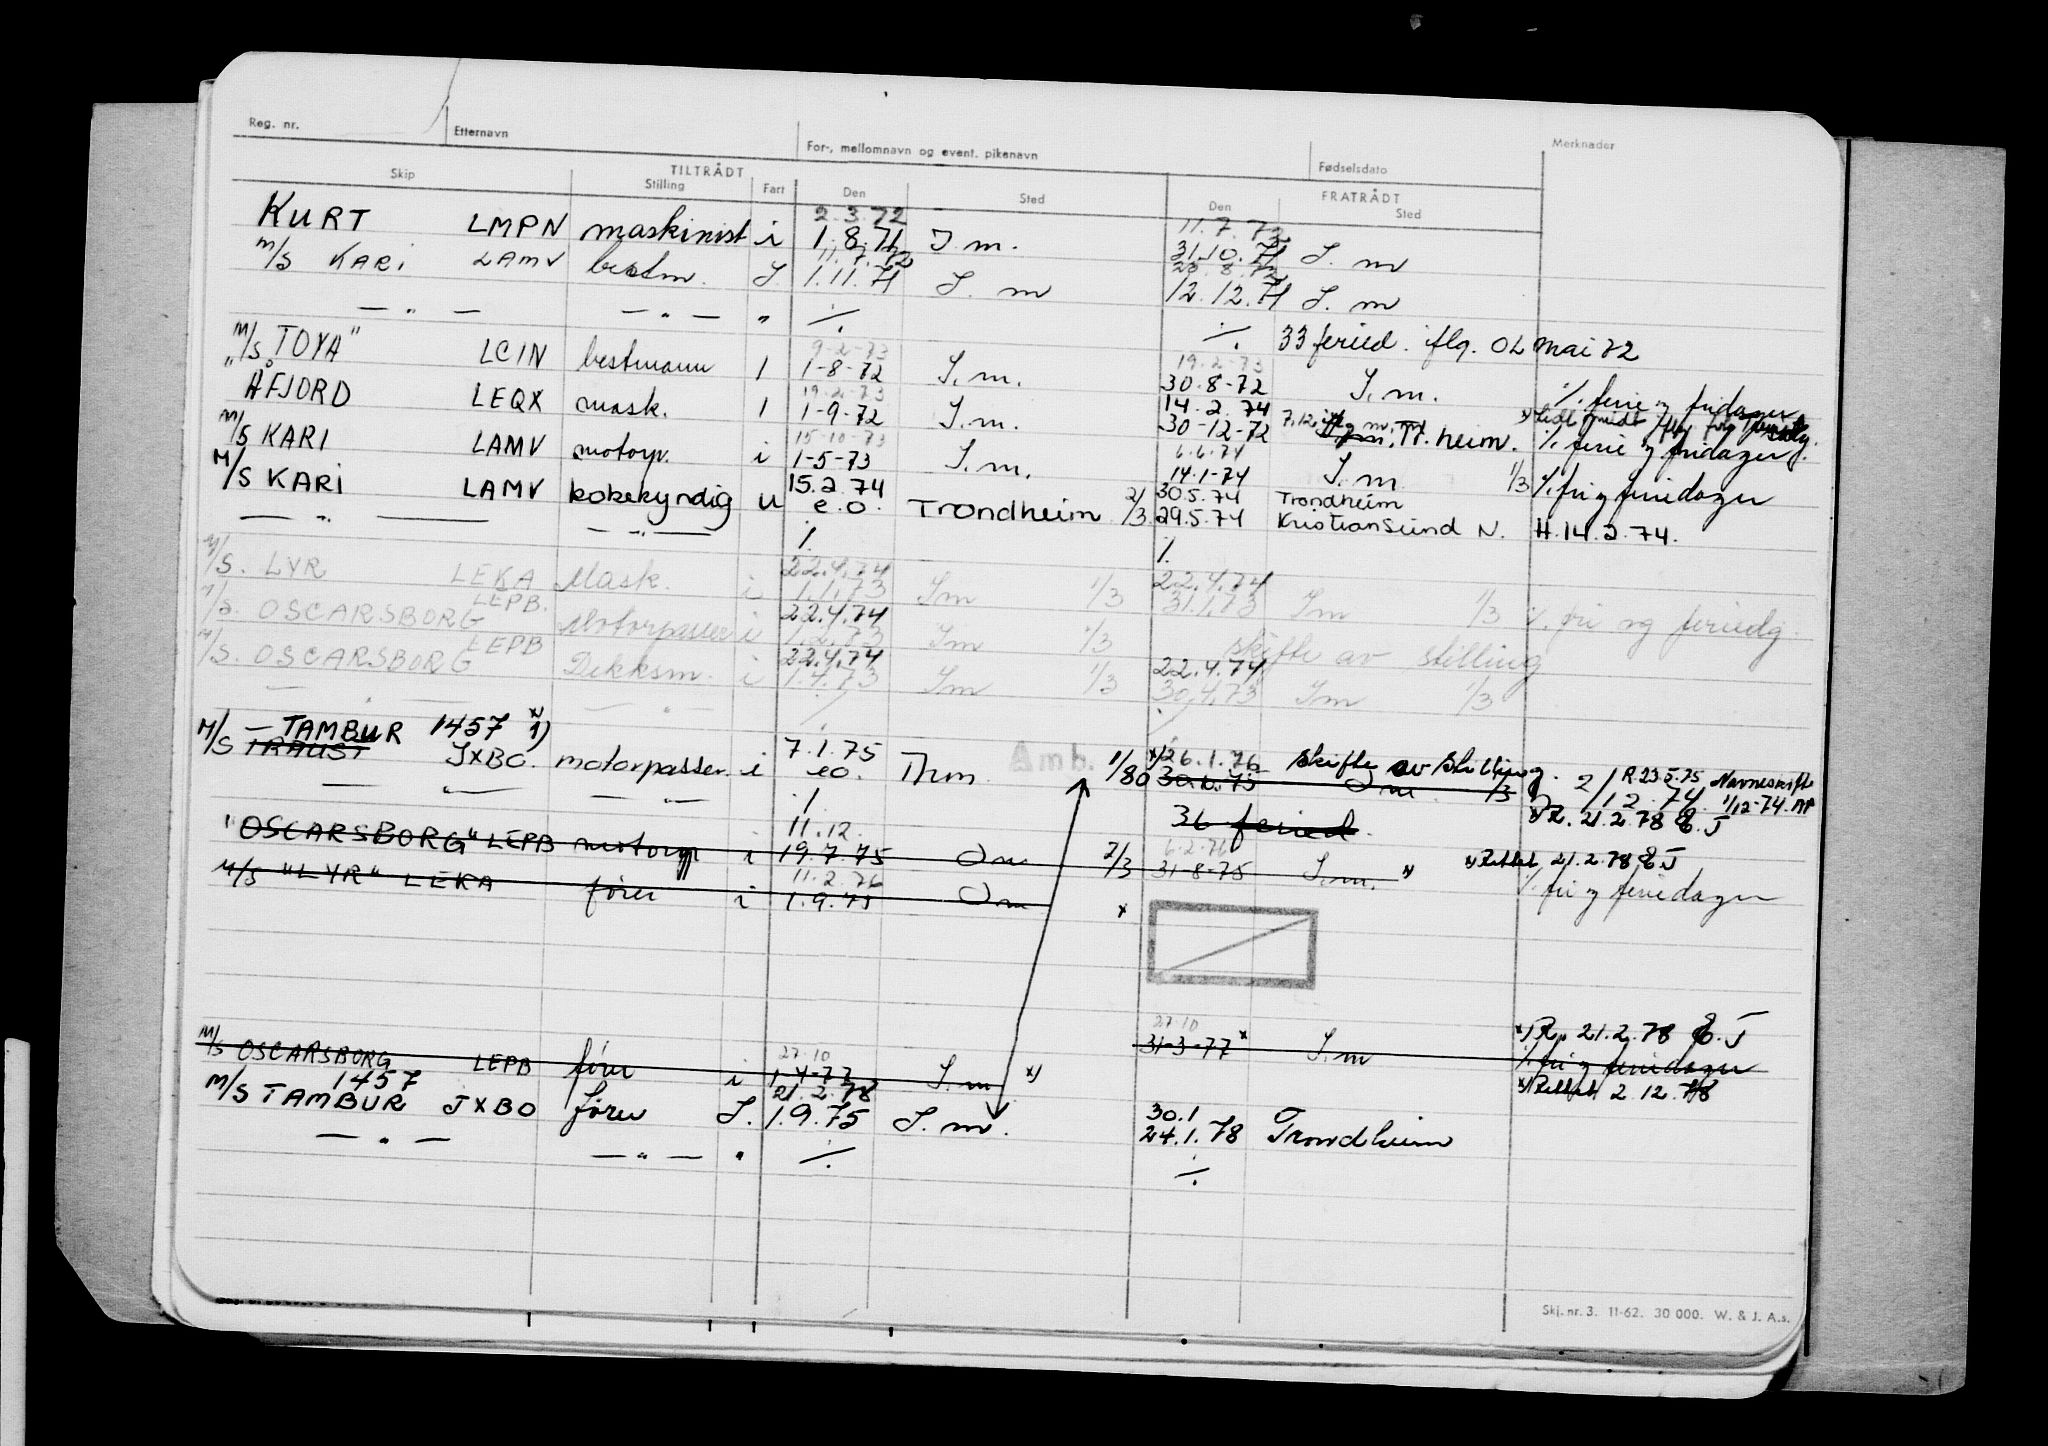 Reg. nr. Etternavn For-, mellomnavn og event. pikenavn Fødselsdato Merknader
TILTRÅDT FRATRÅDT
Skip Stilling Fart Den Sted Den Sted
2.3.72 11.7.72
KURT LMPN maskinist i 1.8.71 I m. 31.10.71 S. m
11.7.72 23.8.72
M/S KARI LAMV bestm. I. 1.11.71 S. m 12.12.71 S. m
— " — — " — " ·/. ·/. 33 feried. iflg. OL mai 72
9-2-73 19.2-73
M/S "TOYA" LCIN bestmann I 1-8-72 S.m. 30.8-72 S.m. ·/. ferie og fridager
19.2-73 14.2.74
" ÅFJORD LEQX mask. I 1-9-72 S.m. 30-12-72 Tr.heim. ·/. ferie og fridager
15-10-73 6.6.74
M/S KARI LAMV motorp. i 1-5-73 S.m. 14.1-74 S.m. 1/3 ·/. fri og feriedager
15.2.74 30.5.74 Trondheim
M/S KARI LAMV kokekyndig u e.o. Trondheim 2/3 29.5.74 Kristiansund N. H.14.2.74.
— " — — " — ·/. ·/.
22.4.74 22.4.74
M/S. LYR LEKA Mask. i 1.1.73 Sm 1/3 31.1.73 Sm 1/3 ·/. fri og feriedg.
LEPB. 22.4.74
M/S. OSCARSBORG Motorpasser i 1.2.73 Sm 1/3 skifte av stilling
LEPB 22.4.74 22.4.74
M/S. OSCARSBORG Dekksm. i 1.4.73 Sm 1/3 30.4.73 Sm 1/3
— " — — " — ·/. ·/.
— TAMBUR 1457 x 1) 7.1.75 Amb. x) 26.1.76 skifte av stilling. R 23.5.75 Navneskifte
M/S TRAUST JXBO. motorpasser. i eo. Thm. 1/80 30.6.75 Sm 1/3 2/12.74. 1/12-74. AP
— " — — " — ·/. 36 feried. x) R. 21.2.78 E.J
11.12. 6.2.76
"OSCARSBORG" LEPB motorp i 19.7.75 Sm 2/3 31-8-75 S.m. x) x) Rettet 21.2.78 EJ
11.2.76
M/S "LYR" LEKA fører i 1.9.75 Sm x ·/. fri og feriedager
27.10 27.10 x) R. 21.2.78 E.J
M/S OSCARSBORG LEPB fører i 1-4-77 S.m x) 31-3-77 x S.m ·/. fri og feriedager
1457 21.2.78 30.1 x) Rettet 2.12.78
M/S TAMBUR JXBO fører I. 1.9.75 S. m. 24.1.78 Trondheim
— " — — " — " ·/. ·/.
Skj. nr. 3. 11-62. 30 000. W. & J. A.s.